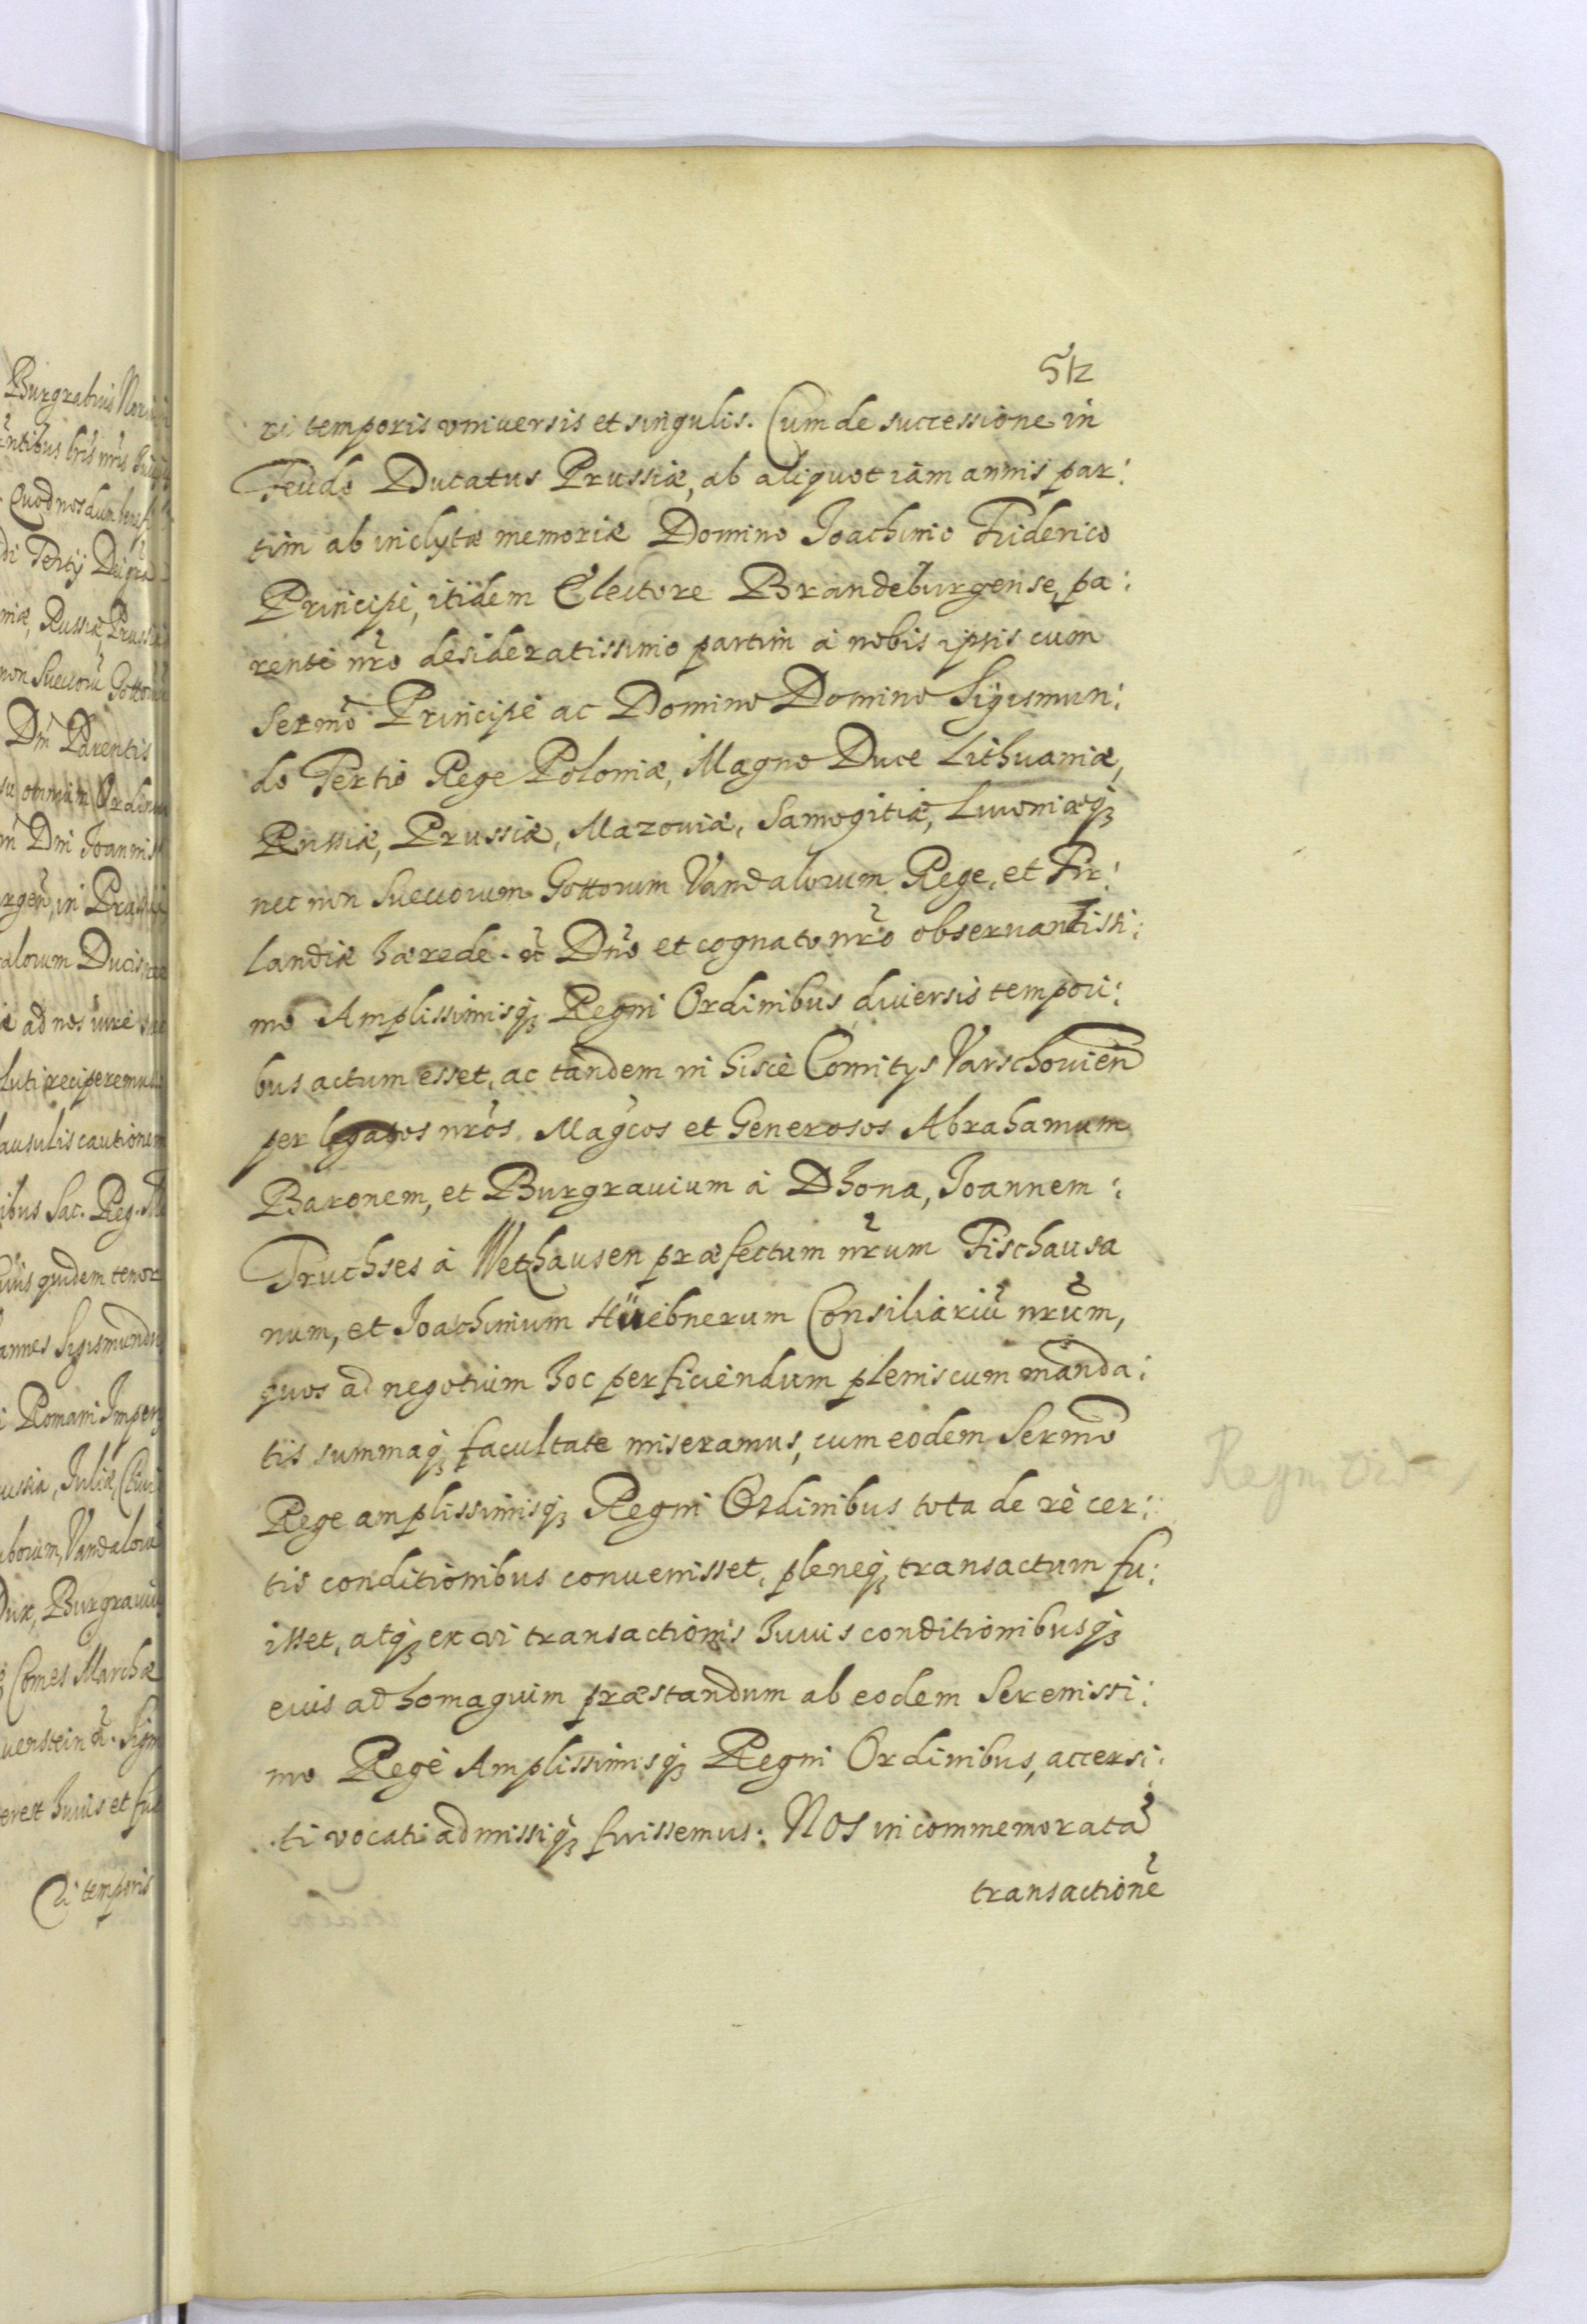 512
ri temporis vniuersis et singulis. Cum de successione in
Feudo Ducatus Prussiæ, ab aliquot iam annis par:
tim ab inclytæ memoriæ Domino Joachimo Friderico
Principe, itidem Electore Brandeburgense, pa:
rente nr̃o desideratissimo partim à nobis ipsis cum
Sermo͂ Principe ac Domino Domino Sigismun:
do Tertio Rege Poloniæ, Magno Duce Lithuaniæ,
Russiæ, Prussiæ, Mazouiæ, Samogitiæ, Liuoniæq3
nec non Sueuorum Gottorum Vandalorum Rege, et Fin:
landiæ hærede. etc̃ Dno͂ et cognato nr̃o obseruantissi:
mo Amplissimisq3 Regni Ordinibus diuersis tempori:
bus actum esset, ac tandem in hisce Comitijs Varschouien͂
per legatos nr̃os. Mag̃cos et Generosos Abrahamum
Baronem, et Burgrauium à Dhona, Joannem:
Truchses à Wetzhausen præfectum nr̃um Fischausa
num, et Joachimum Hüebnerum Consiliariũ nr̃um,
quos ad negotium hoc perficiendum plenis cum manda:
tis summaq3 facultate miseramus, cum eodem Sermo͂
Rege amplissimisq3 Regni Ordinibus tota de rè cer:
tis conditionibus conuenisset, pleneq3 transactum fu:
isset, atq3 ex vi transactionis huius conditionibusq3
eius ad homagium præstandum ab eodem Serenissi:
mo Rege Amplissimisq3 Regni Ordinibus, accersi:
ti vocati admissiq3 fuissemus: NOS in commemoratã
transactionẽ